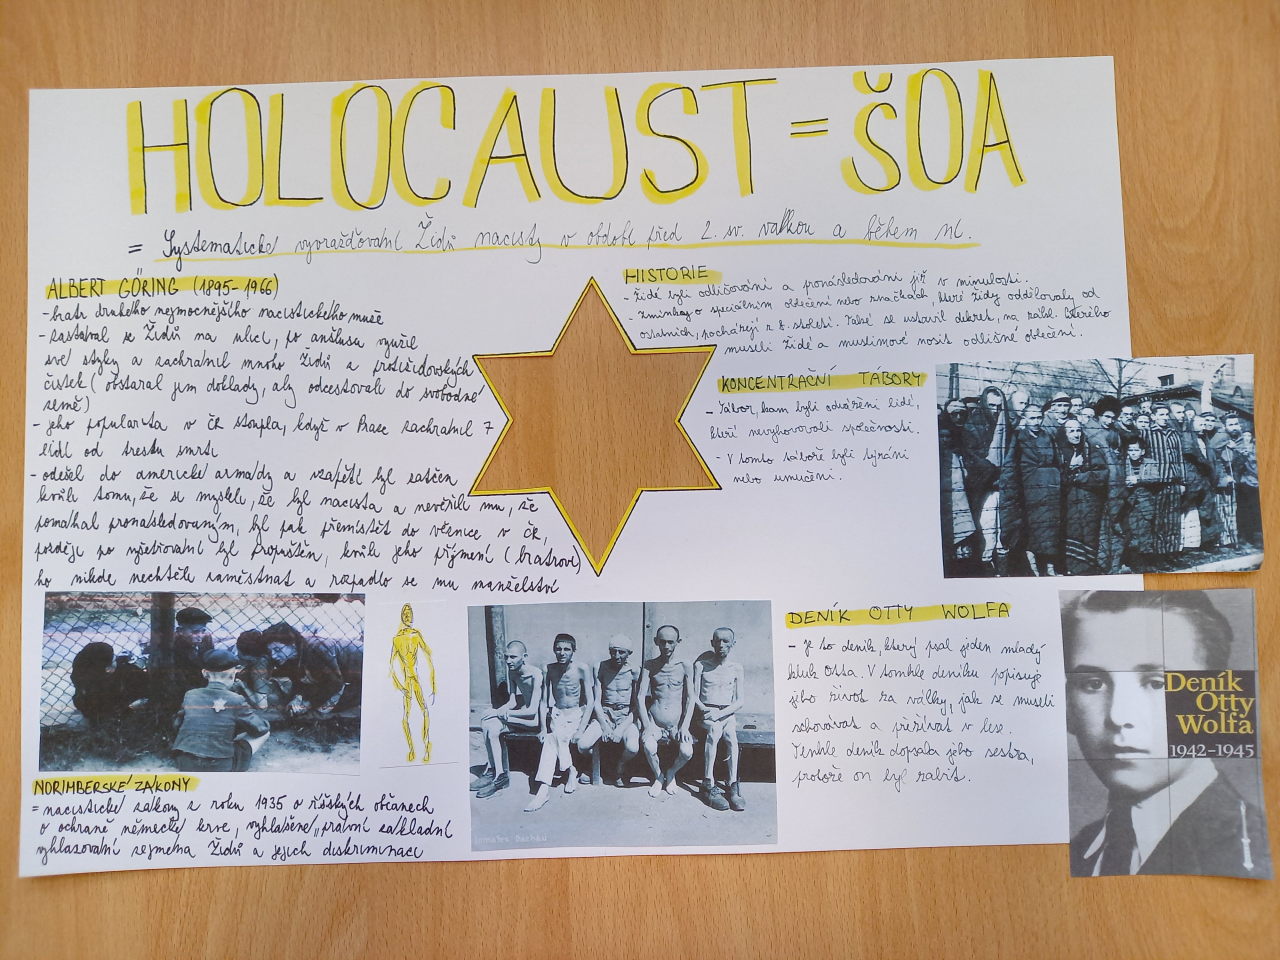 HOLOCAUST = ŠOA
= Systematické vyvražďování Židů nacisty v období před 2. sv. válkou a během ní.
ALBERT GÖRING (1895-1966)
- bratr druhého nejmocnějšího nacistického muže
- zastával se Židů na ulici, po anšlusu využil
své styky a zachránil mnoho Židů a protižidovských
čistek (obstaral jim doklady, aby odcestovali do svobodné
země)
- jeho popularita v ČR stoupla, když v Praze zachránil 7
lidí od trestu smrti
- odešel do americké armády a vzápětí byl zatčen
kvůli tomu, že si mysleli, že byl nacista a nevěřili mu, že
pomáhal pronásledovaným, byl pak přemístěn do věznice v ČR,
později po vyšetřování byl propuštěn, kvůli jeho příjmení (bratrovi)
ho nikde nechtěli zaměstnat a rozpadlo se mu manželství
HISTORIE
- Židé byli odlišováni a pronásledováni již v minulosti.
- Zmínky o speciálním oblečení nebo značkách, které Židy oddělovaly od
ostatních, pocházejí z 8. století. Také se ustavil dekret, na zákl. kterého
museli Židé a muslimové nosit odlišné oblečení.
KONCENTRAČNÍ TÁBORY
- Tábor, kam byli odváženi lidé,
kteří nevyhovovali společnosti.
- V tomto táboře byli týráni
nebo umučeni.
DENÍK OTTY WOLFA
- Je to deník, který psal jeden mladý
kluk Otta. V tomhle deníku popisuje
jeho život za války, jak se museli
schovávat a přežívat v lese.
Tenhle deník dopsala jeho sestra,
protože on byl zabit.
Deník
Otty
Wolfa
1942–1945
NORIMBERSKÉ ZÁKONY
= nacistické zákony z roku 1935 o říšských občanech
o ochraně německé krve, vyhlášené „právní základní
vyhlašování zejména Židů a jejich diskriminaci
Inmates Dachau